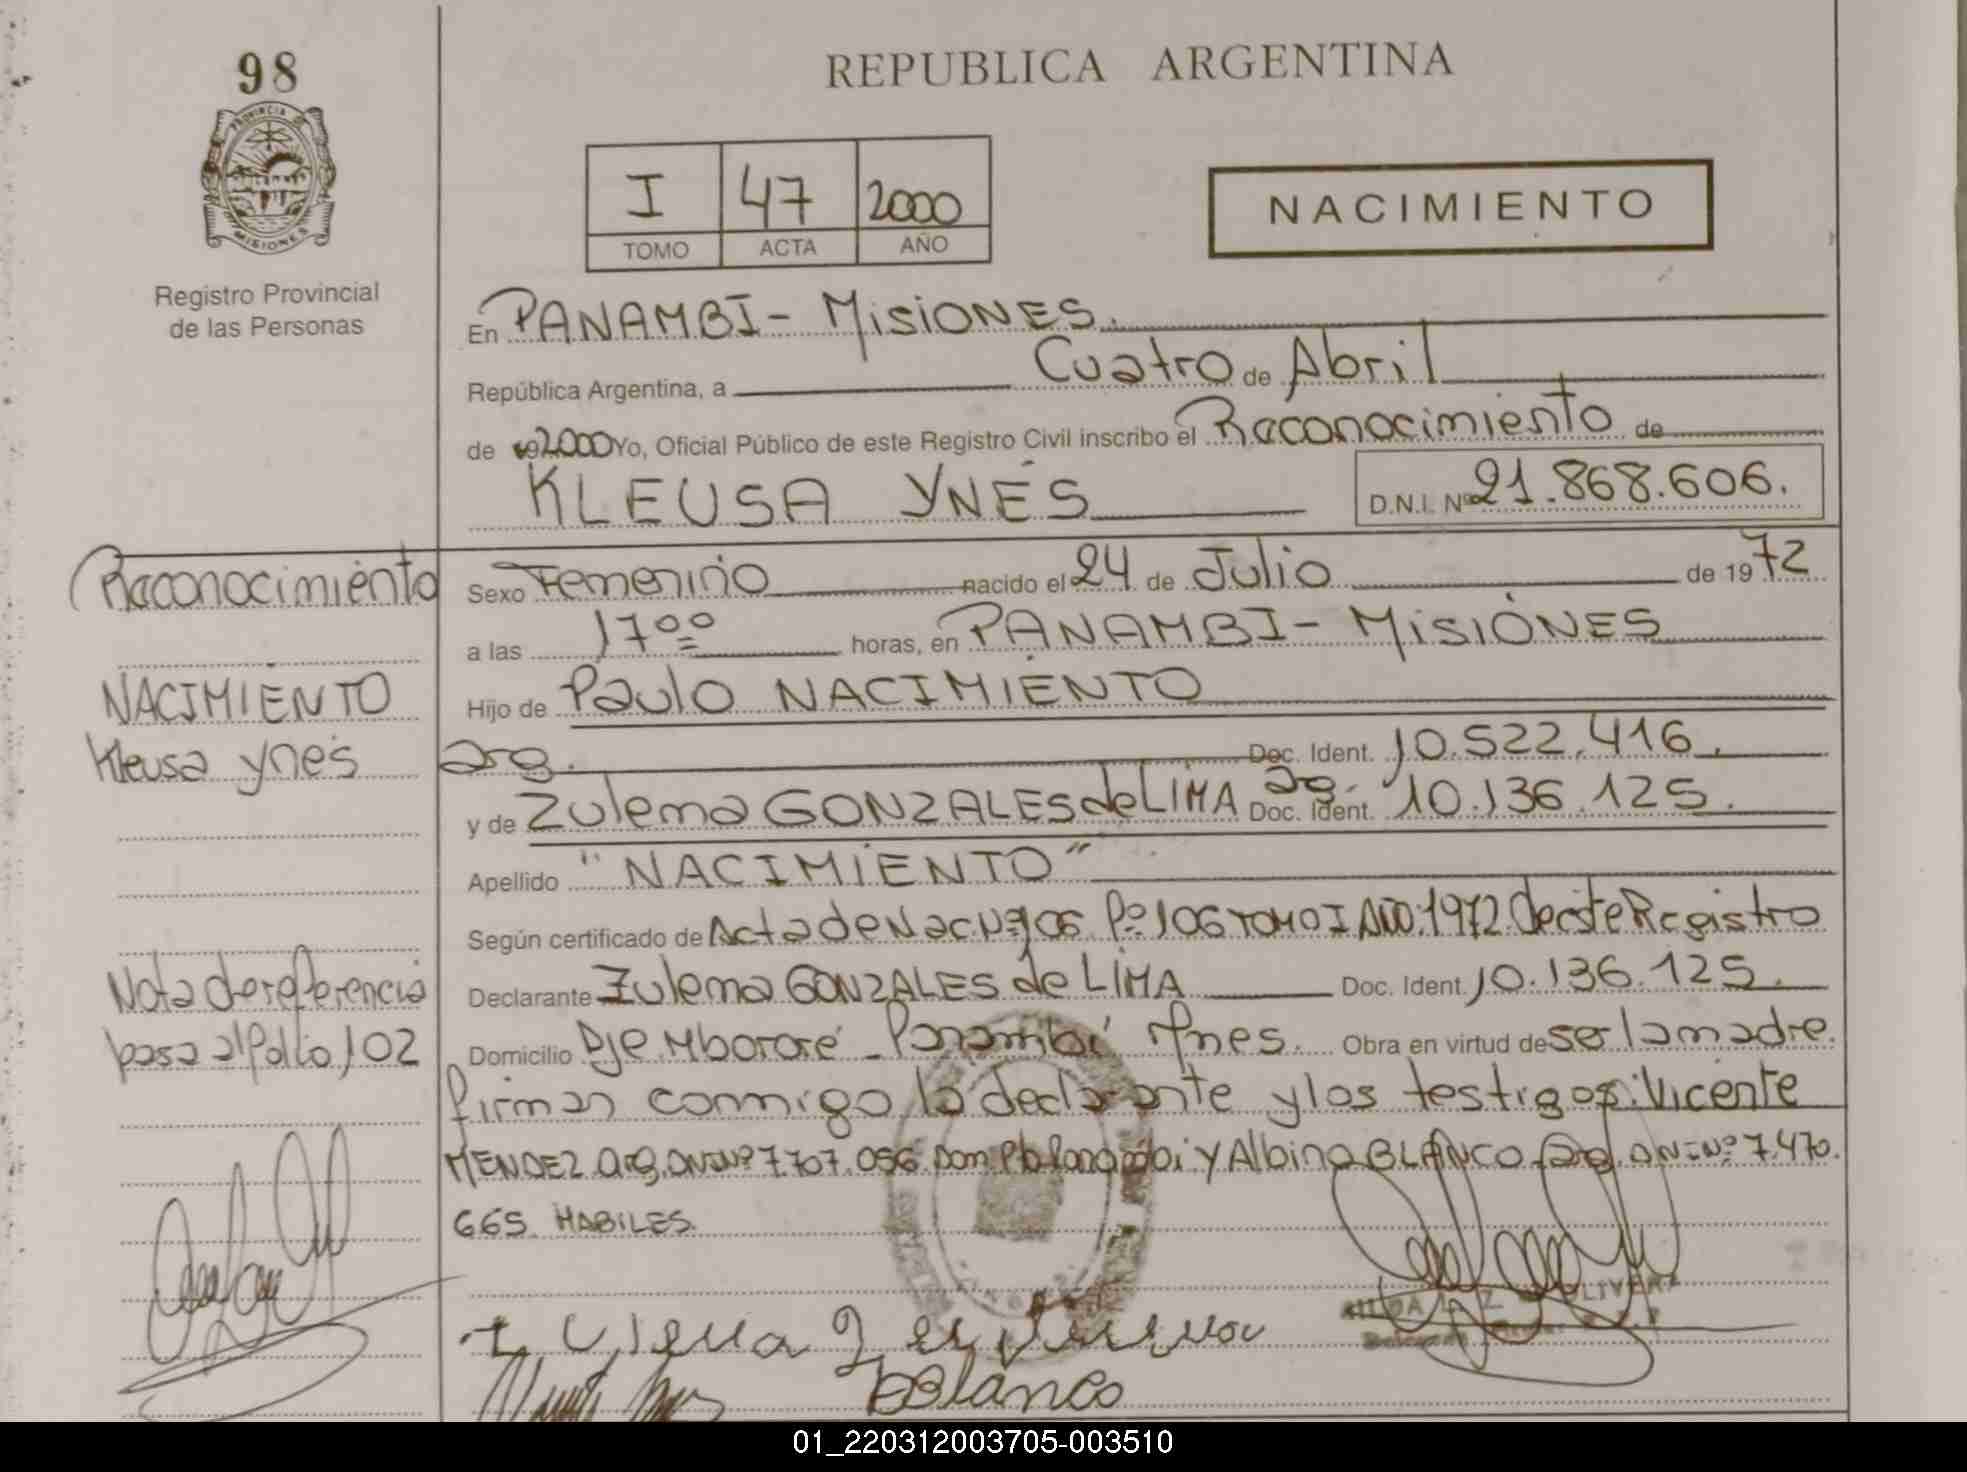 98
PROVINCIA DE
MISIONES
Registro Provincial
de las Personas
REPUBLICA ARGENTINA
I 47 2000
TOMO ACTA AÑO
NACIMIENTO
En PANAMBI - MisiONES.
República Argentina, a Cuatro de Abril
de 192000 Yo, Oficial Público de este Registro Civil inscribo el Reconocimiento de
KLEUSA YNÉS D.N.I. Nº 21.868.606.
Reconocimiento
NACIMIENTO
Kleusa ynés
Nota de referencia
pasa al folio 102
Sexo Femenino nacido el 24 de Julio de 1972
a las 17ºº horas, en PANAMBI - MisiONES
Hijo de Paulo NACIMIENTO
arg. Doc. Ident. 10.522.416.
y de Zulema GONZALES de LIMA arg. Doc. Ident. 10.136.125.
Apellido "NACIMIENTO"
Según certificado de Acta de Nac. Nº 106 Fº 106 TOMO I AÑO 1972 de este Registro
Declarante Zulema GONZALES de LIMA Doc. Ident. 10.136.125.
Domicilio Pje. Mbororé - Panambí Mnes. Obra en virtud de ser la madre.
firman conmigo la declarante y los testigos: Vicente
MENDEZ arg. DNI Nº 7.707.056 Dom. Pto Panambi y Albino BLANCO arg. DNI Nº 7.470.
665 HABILES.
Blanco
01_220312003705-003510